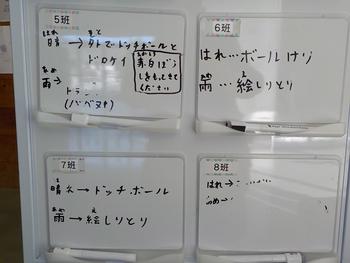 5班
晴→外でドッチボールと
ドロケイ
赤白ぼう
しをもってきて
ください
雨→
トランプ
(ババヌキ)
6班
はれ…ボールけり
雨…絵しりとり
7班
晴れ→ドッチボール
雨→絵しりとり
8班
はれ→